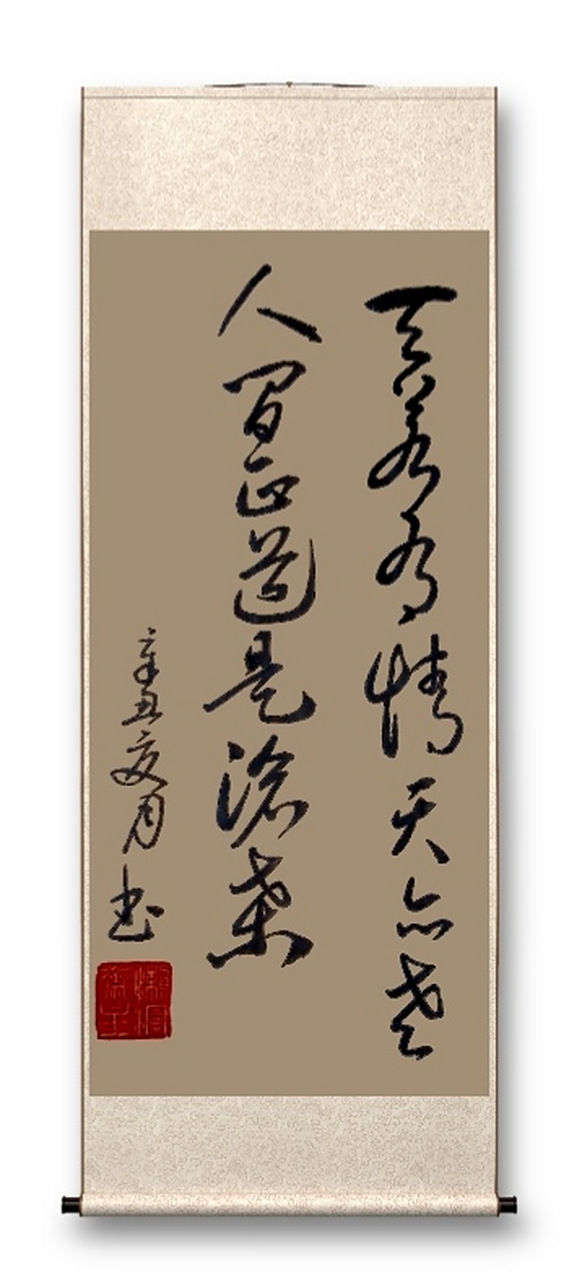 天若有情天亦老
人间正道是沧桑
辛丑夏月
书